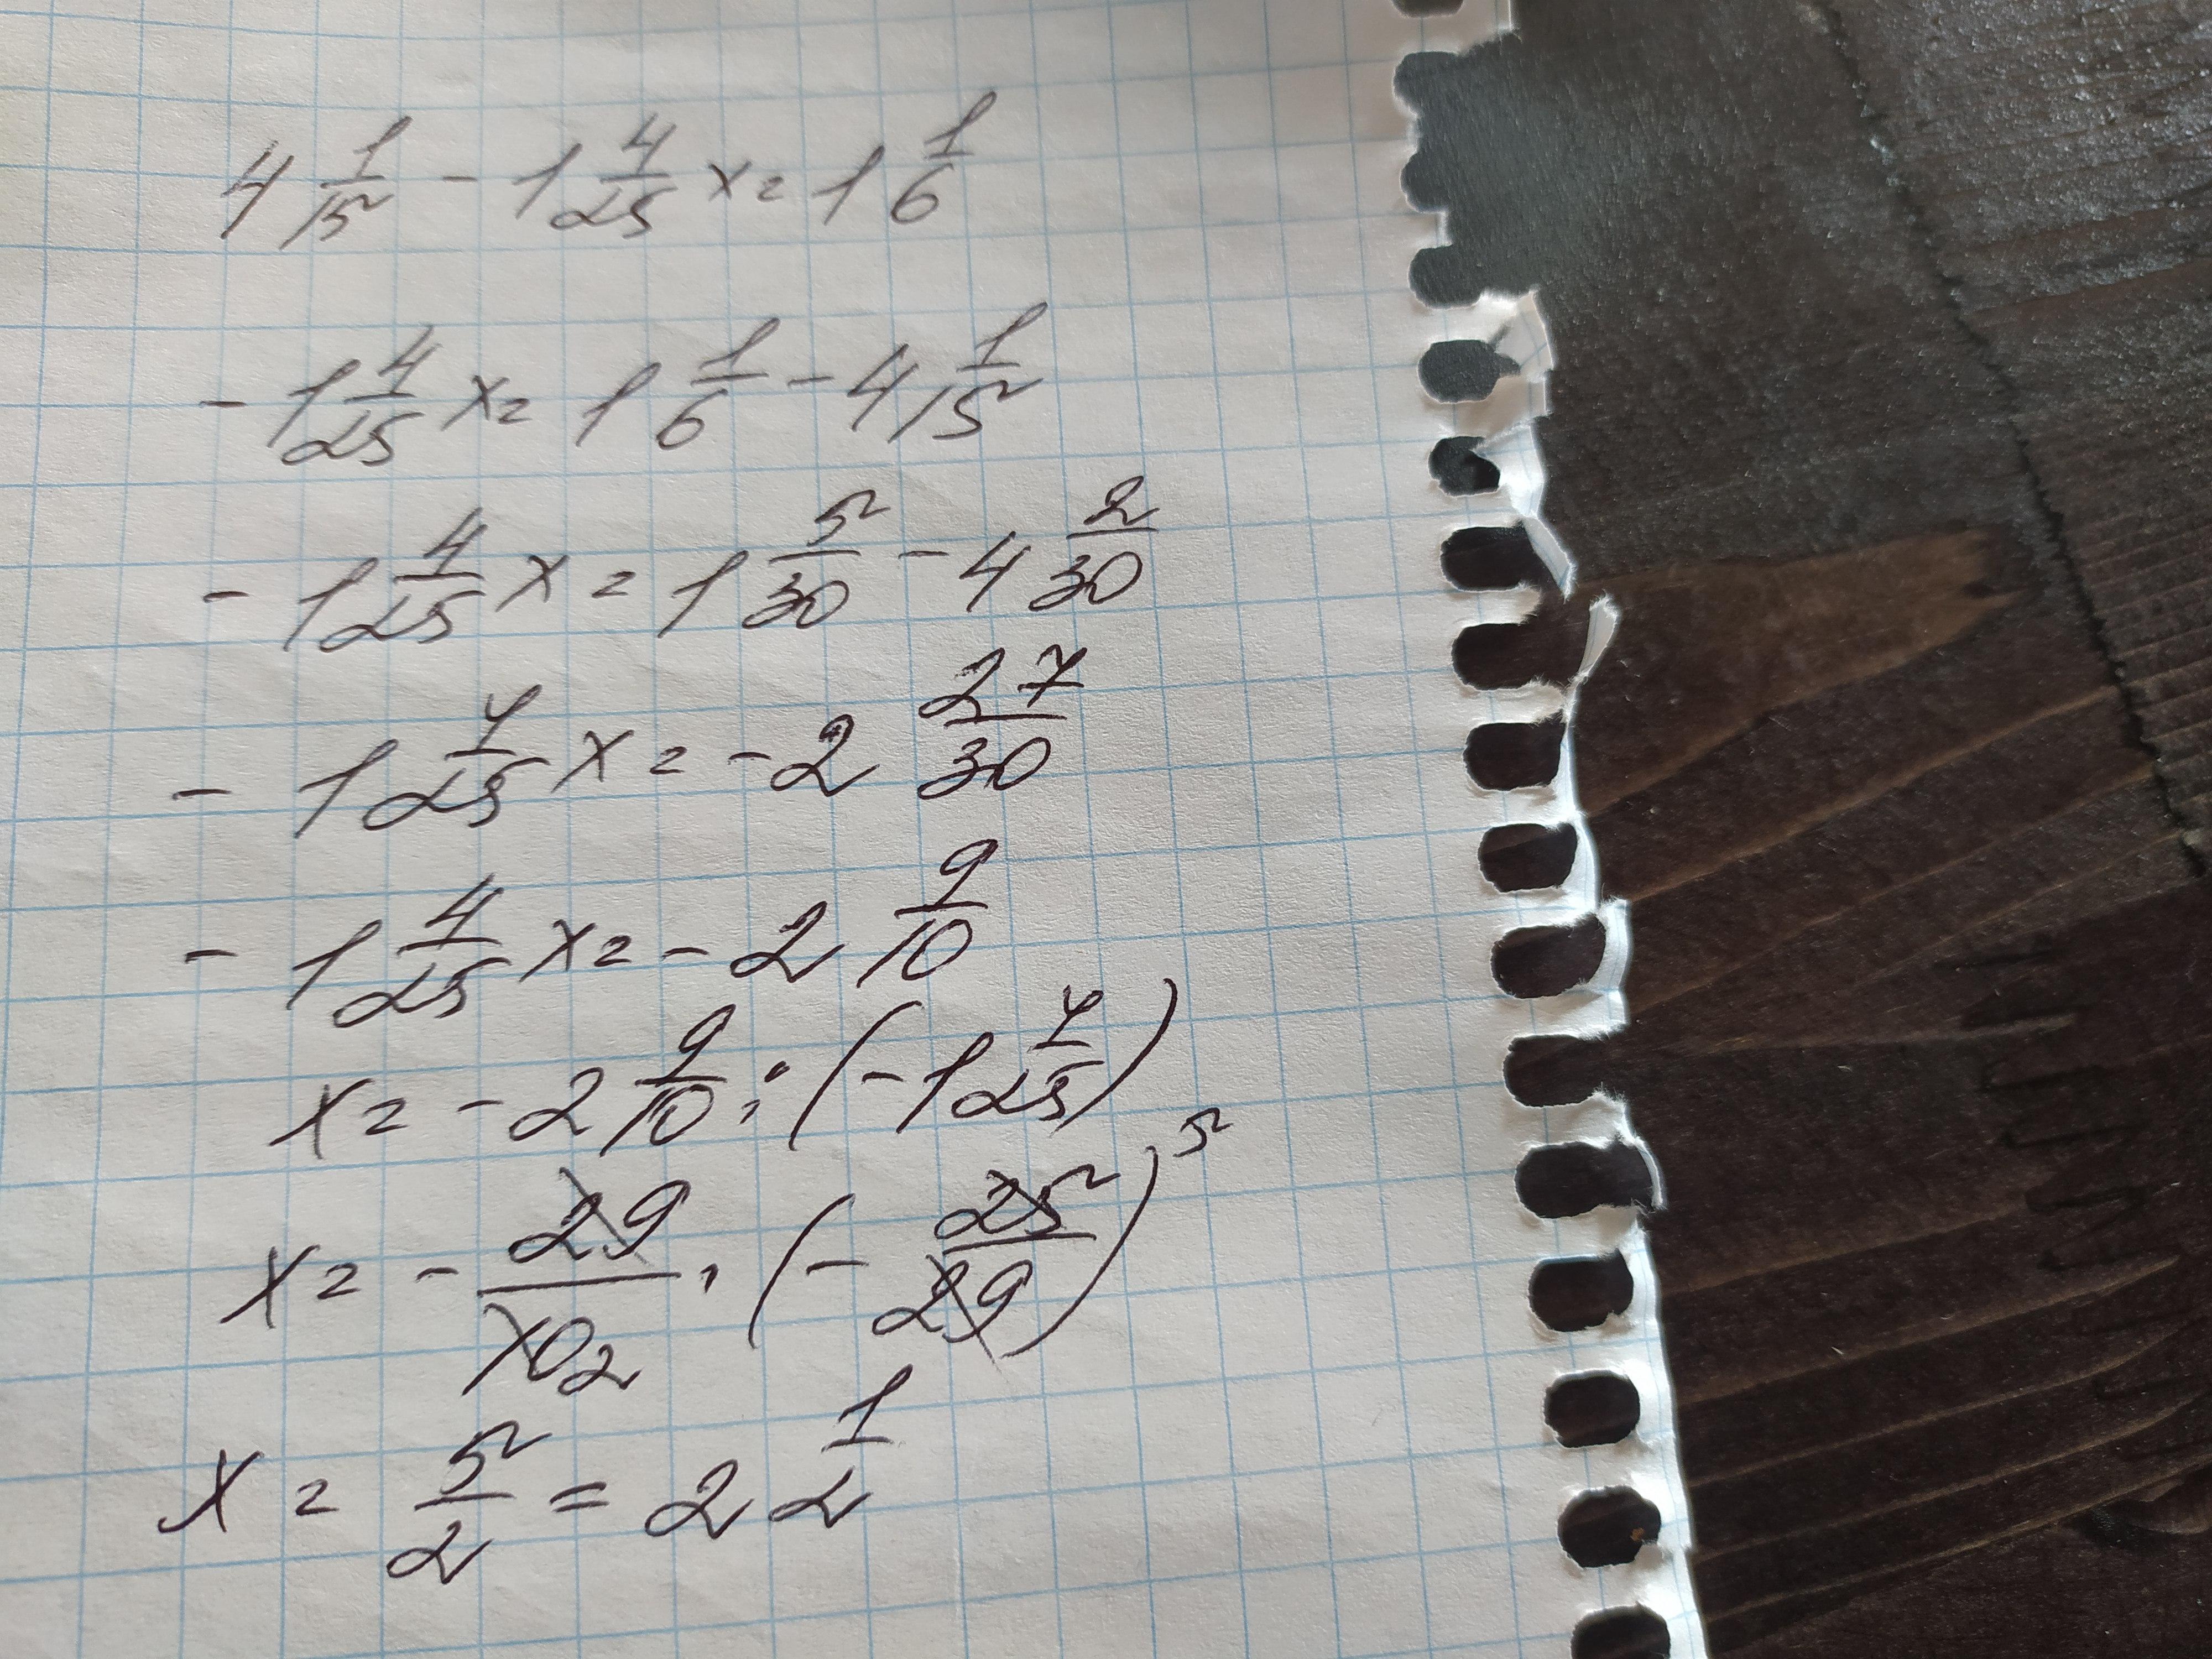 4 1/15 - 1 4/25 x = 1 1/6
- 1 4/25 x = 1 1/6 - 4 1/15
- 1 4/25 x = 1 5/30 - 4 2/30
- 1 4/25 x = - 2 27/30
- 1 4/25 x = - 2 9/10
x = - 2 9/10 : (- 1 4/25)
x = - 29/10 2 · (- 25/29) 5
x = 5/2 = 2 1/2